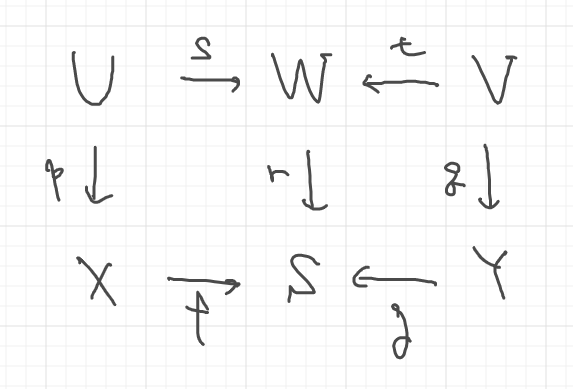 U s→ W ←t V
p↓ r↓ q↓
X →f S ←g Y